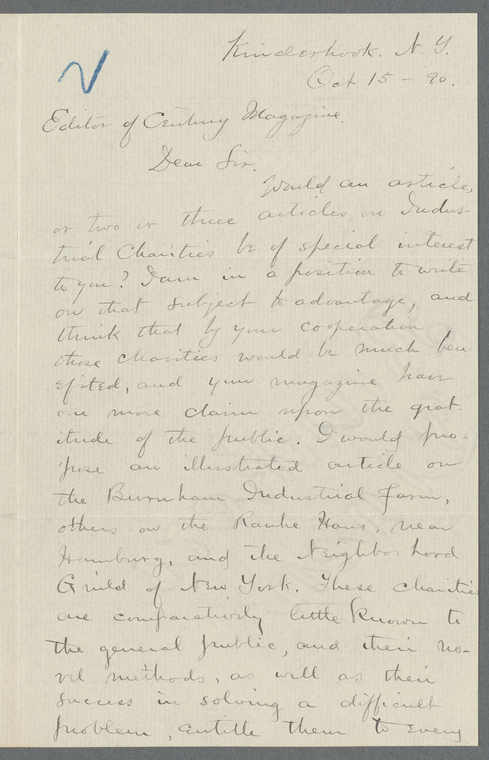 Kinderhook. N. Y.
Oct. 15 - 90.
Editor of Century Magazine.
Dear Sir.
Would an article,
or two or three articles on Indus-
trial Charities be of special interest
to you? I am in a position to write
on that subject to advantage, and
think that by your cooperation
those charities would be much ben-
efited, and your magazine have
one more claim upon the grat-
itude of the public. I would pro-
pose an illustrated article on
the Burnham Industrial Farm,
others on the Rauhe Haus, near
Hamburg, and the Neighborhood
Guild of New York. These charities
are comparatively little known to
the general public, and their no-
vel methods, as well as their
success in solving a difficult
problem, entitle them to every